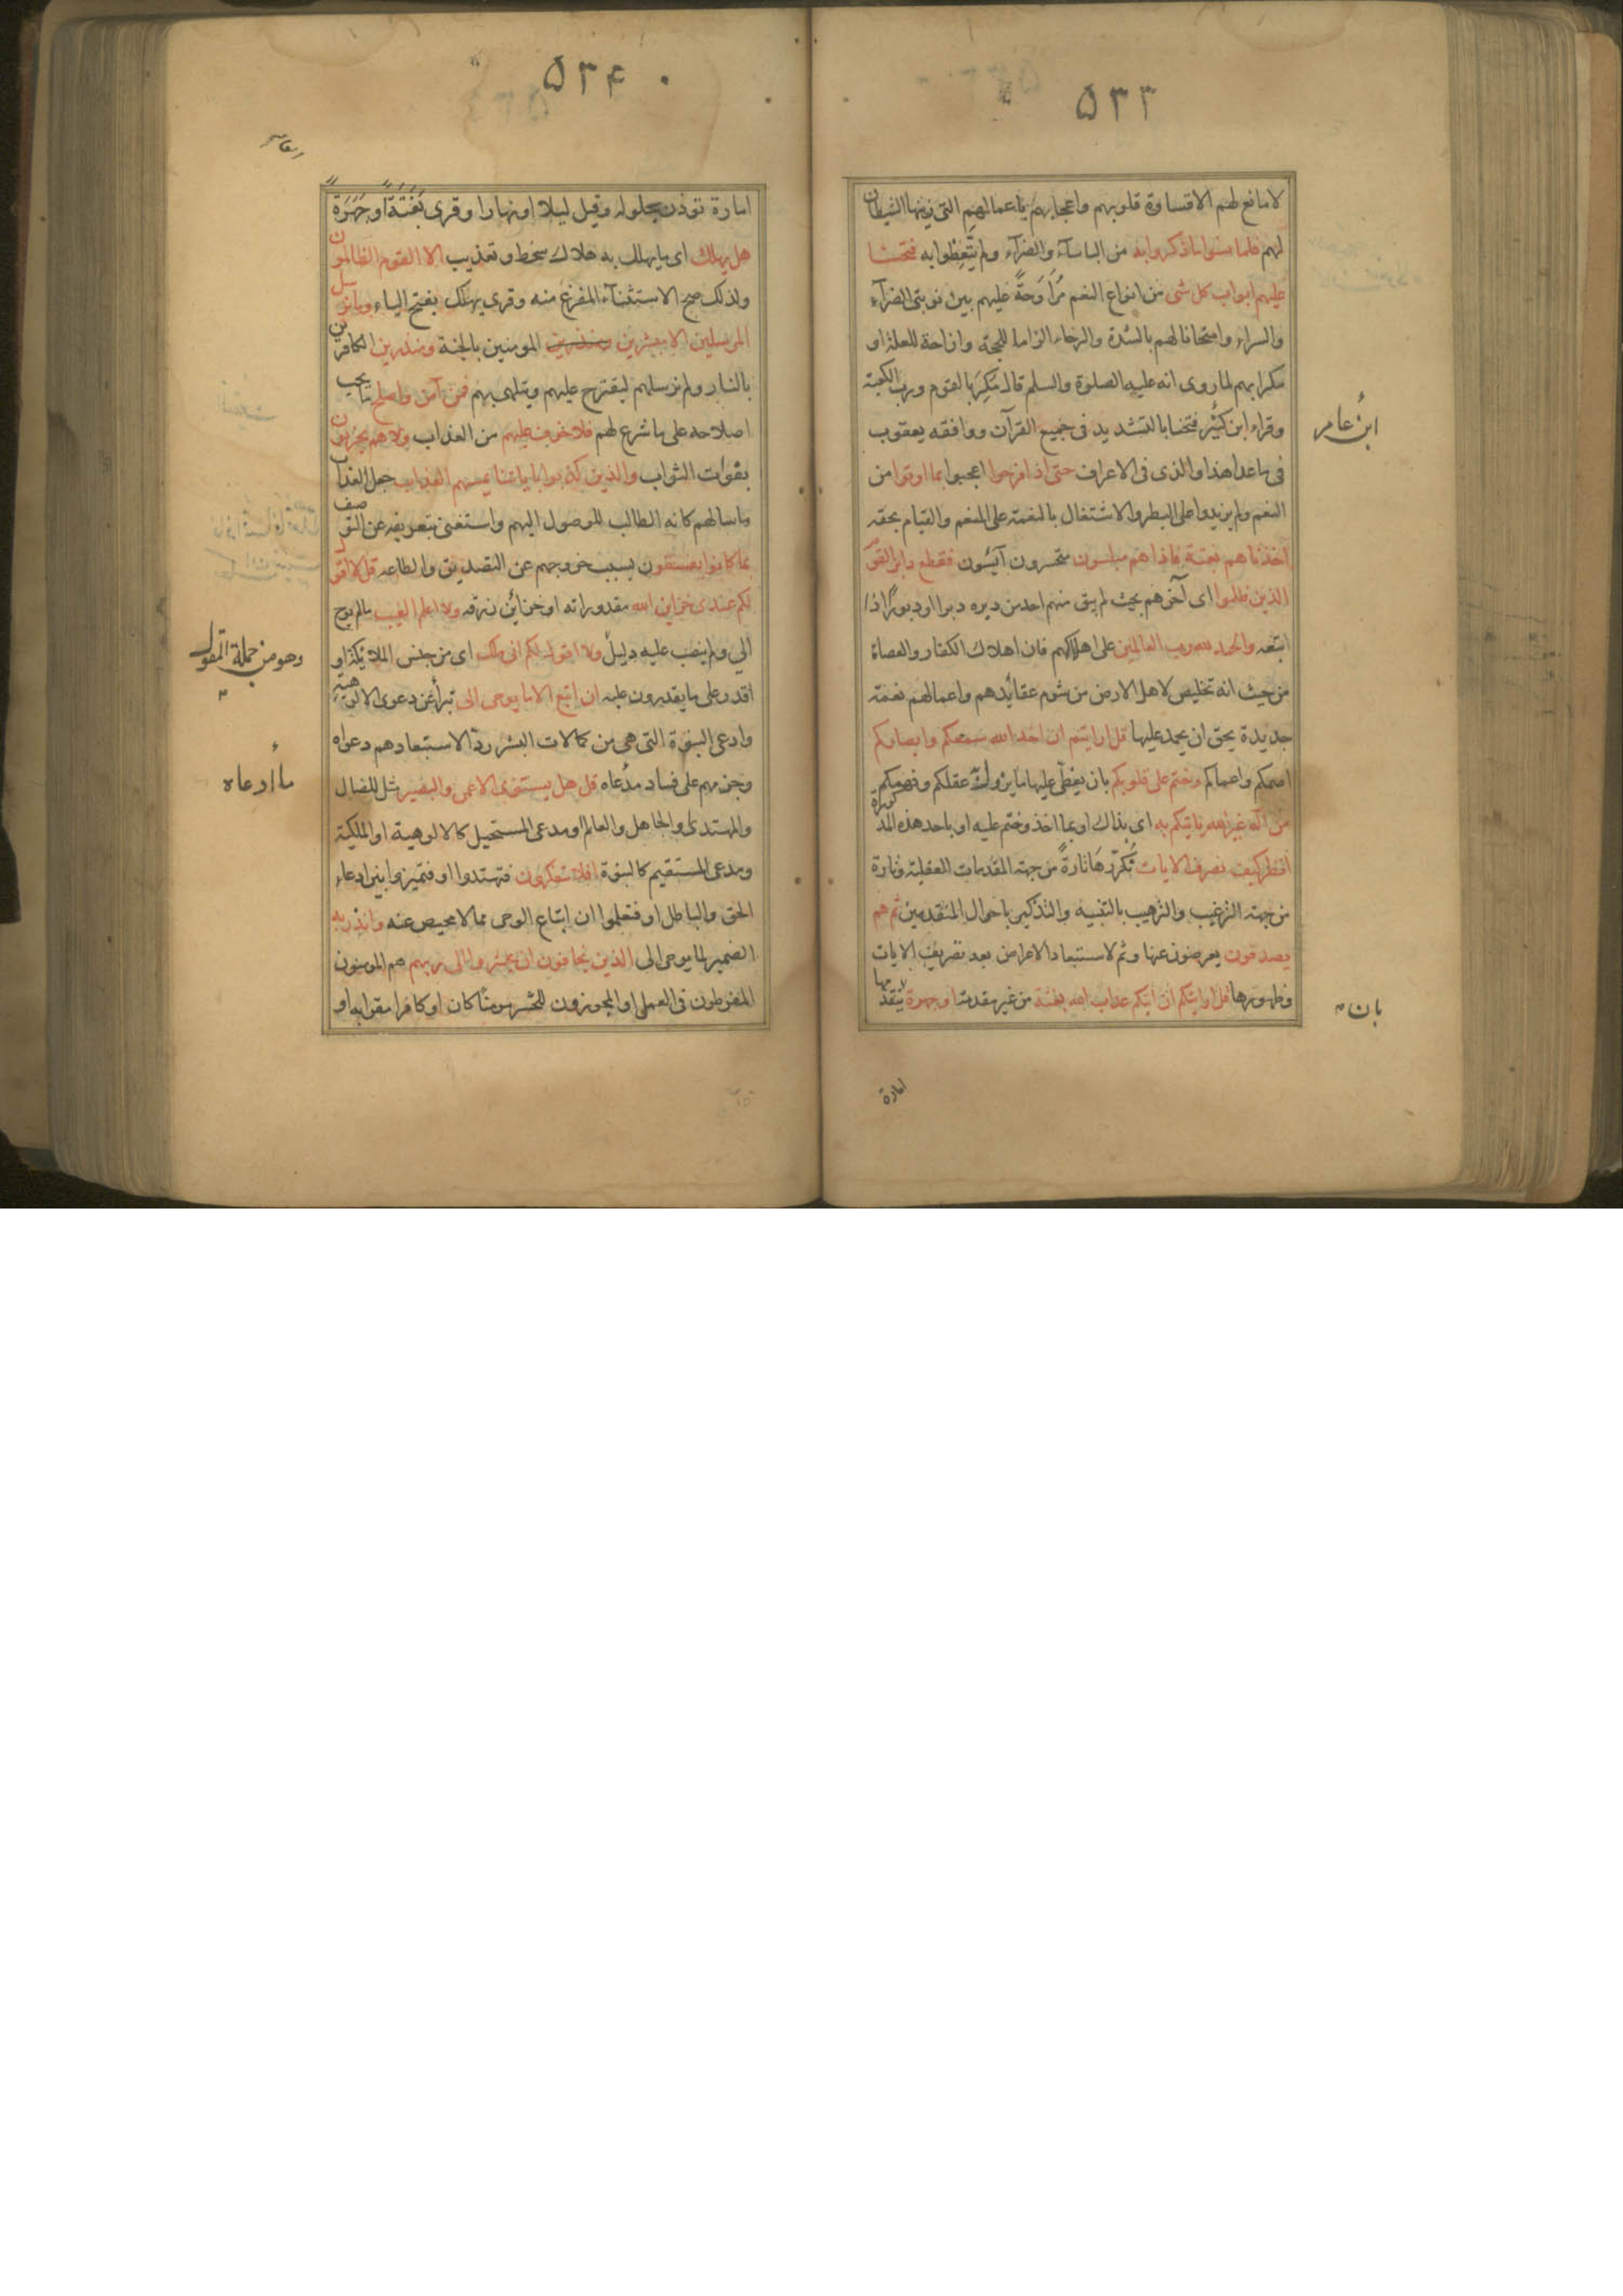 ۵۳۳
لا مانع لهم الا قساوة قلوبهم واعجابهم باعمالهم التي زينها الشيطان
لهم فلما نسوا ما ذكروا به من الباساء والضراء ولم يتعظوا به فتحنا
عليهم ابواب كل شى من انواع النعم مُرَاوَحَةً عليهم بين نوبتى الضرآء
والسراء وامتحانا لهم بالشدة والرخاء الزاما للحجة وازاحة للعلة او
مكرا بهم لما روى انه عليه الصلوة والسلم قال مُكِرَ بالقوم ورب الكعبة
وقراء ابن كثير فتحنا بالتشديد فى جميع القرآن ووافقه يعقوب
ابن عامر
فى ما عدا هذا والذى فى الاعراف حتى اذا فرحوا اعجبوا بما اوتوا من
النعم ولم يزيدوا على البطر والاشتغال بالنعمة على المنعم والقيام بحقه
اخذناهم بغتة فاذا هم مبلسون متحسرون آيسون فقطع دابر القوم
الذين ظلموا اى آخرهم بحيث لم يبق منهم احد من دبره دبرا ودبورًا اذا
اتبعه والحمد لله رب العالمين على اهلاكهم فان اهلاك الكفار والعصاة
من حيث انه تخليص لاهل الارض من شوم عقائدهم واعمالهم نعمة
جديدة يحق ان يحمد عليها قل ارايتم ان اخذ الله سمعكم وابصاركم
اصمكم واعماكم وختم على قلوبكم بان يغطى عليها ما يزول به عقلكم وفهمكم
من اله غير الله ياتيكم به اى بذاك او بما اخذ وختم عليه او باحد هذه المذكورة
انظر كيف نصرف الايات نُكرّرها تارةً من جهة المقدمات العقلية وتارة
من جهة الترغيب والترهيب بالتنبيه والتذكير باحوال المتقدمين ثم هم
يصدفون يعرضون عنها وثم لاستبعاد الاعراض بعد تصريف الايات
وظهورها قل ارايتكم ان اتيكم عذاب الله بغتة من غير مقدمة او جهرة يتقدمها
بان
امارة
۵۳۴
امارة توذن بحلوله وقيل ليلا او نهارا وقرى بَغَتَةً او جَهَرَة
هل يهلك اى ما يهلك به هلاك سخط وتعذيب الا القوم الظالمون
ولذلك صح الاستثناء المفرغ منه وقرى يهلك بفتح الياء وما نرسل
المرسلين الا مبشرين المومنين بالجنة ومنذرين الكافرين
بالنار ولم نرسلهم ليقترح عليهم ويتلهى بهم فمن آمن واصلح ما يجب
اصلاحه على ما شرع لهم فلا خوف عليهم من العذاب ولا هم يحزنون
بفوات الثواب والذين كذبوا باياتنا يمسهم العذاب جعل العذاب
ماسا لهم كانه الطالب للوصول اليهم واستغنى بتعريفه عن التوصيف
بما كانوا يفسقون بسبب خروجهم عن التصديق والطاعة قل لا اقول
لكم عندى خزاين الله مقدوراته او خزائن رزقه ولا اعلم الغيب ما لم يوح
الي ولم ينصب عليه دليل ولا اقول لكم انى ملك اى من جنس الملائكة او
وهو من جملة المقول
اقدر على ما يقدرون عليه ان اتبع الا ما يوحى الى تبرأ عن دعوى الالوهية
وادعى النبوة التى هى من كمالات البشر ردّا لاستبعادهم دعواه
وجزمهم على فساد مدّعاه قل هل يستوى الاعمى والبصير مثل للضال
ما ادعاه
والمهتدى او الجاهل والعالم او مدعى المستحيل كالالوهية او الملكية
ومدعى المستقيم كالنبوة افلا تتفكرون فتهتدوا او فتميزوا بين ادعاء
الحق والباطل او فتعلموا ان اتباع الوحى مما لا محيص عنه وانذر به
الضمير لما يوحى الى الذين يخافون ان يحشروا الى ربهم هم المومنون
المفرطون فى العمل او المجوزون للحشر مومنًا كان او كافرا مقرا به او